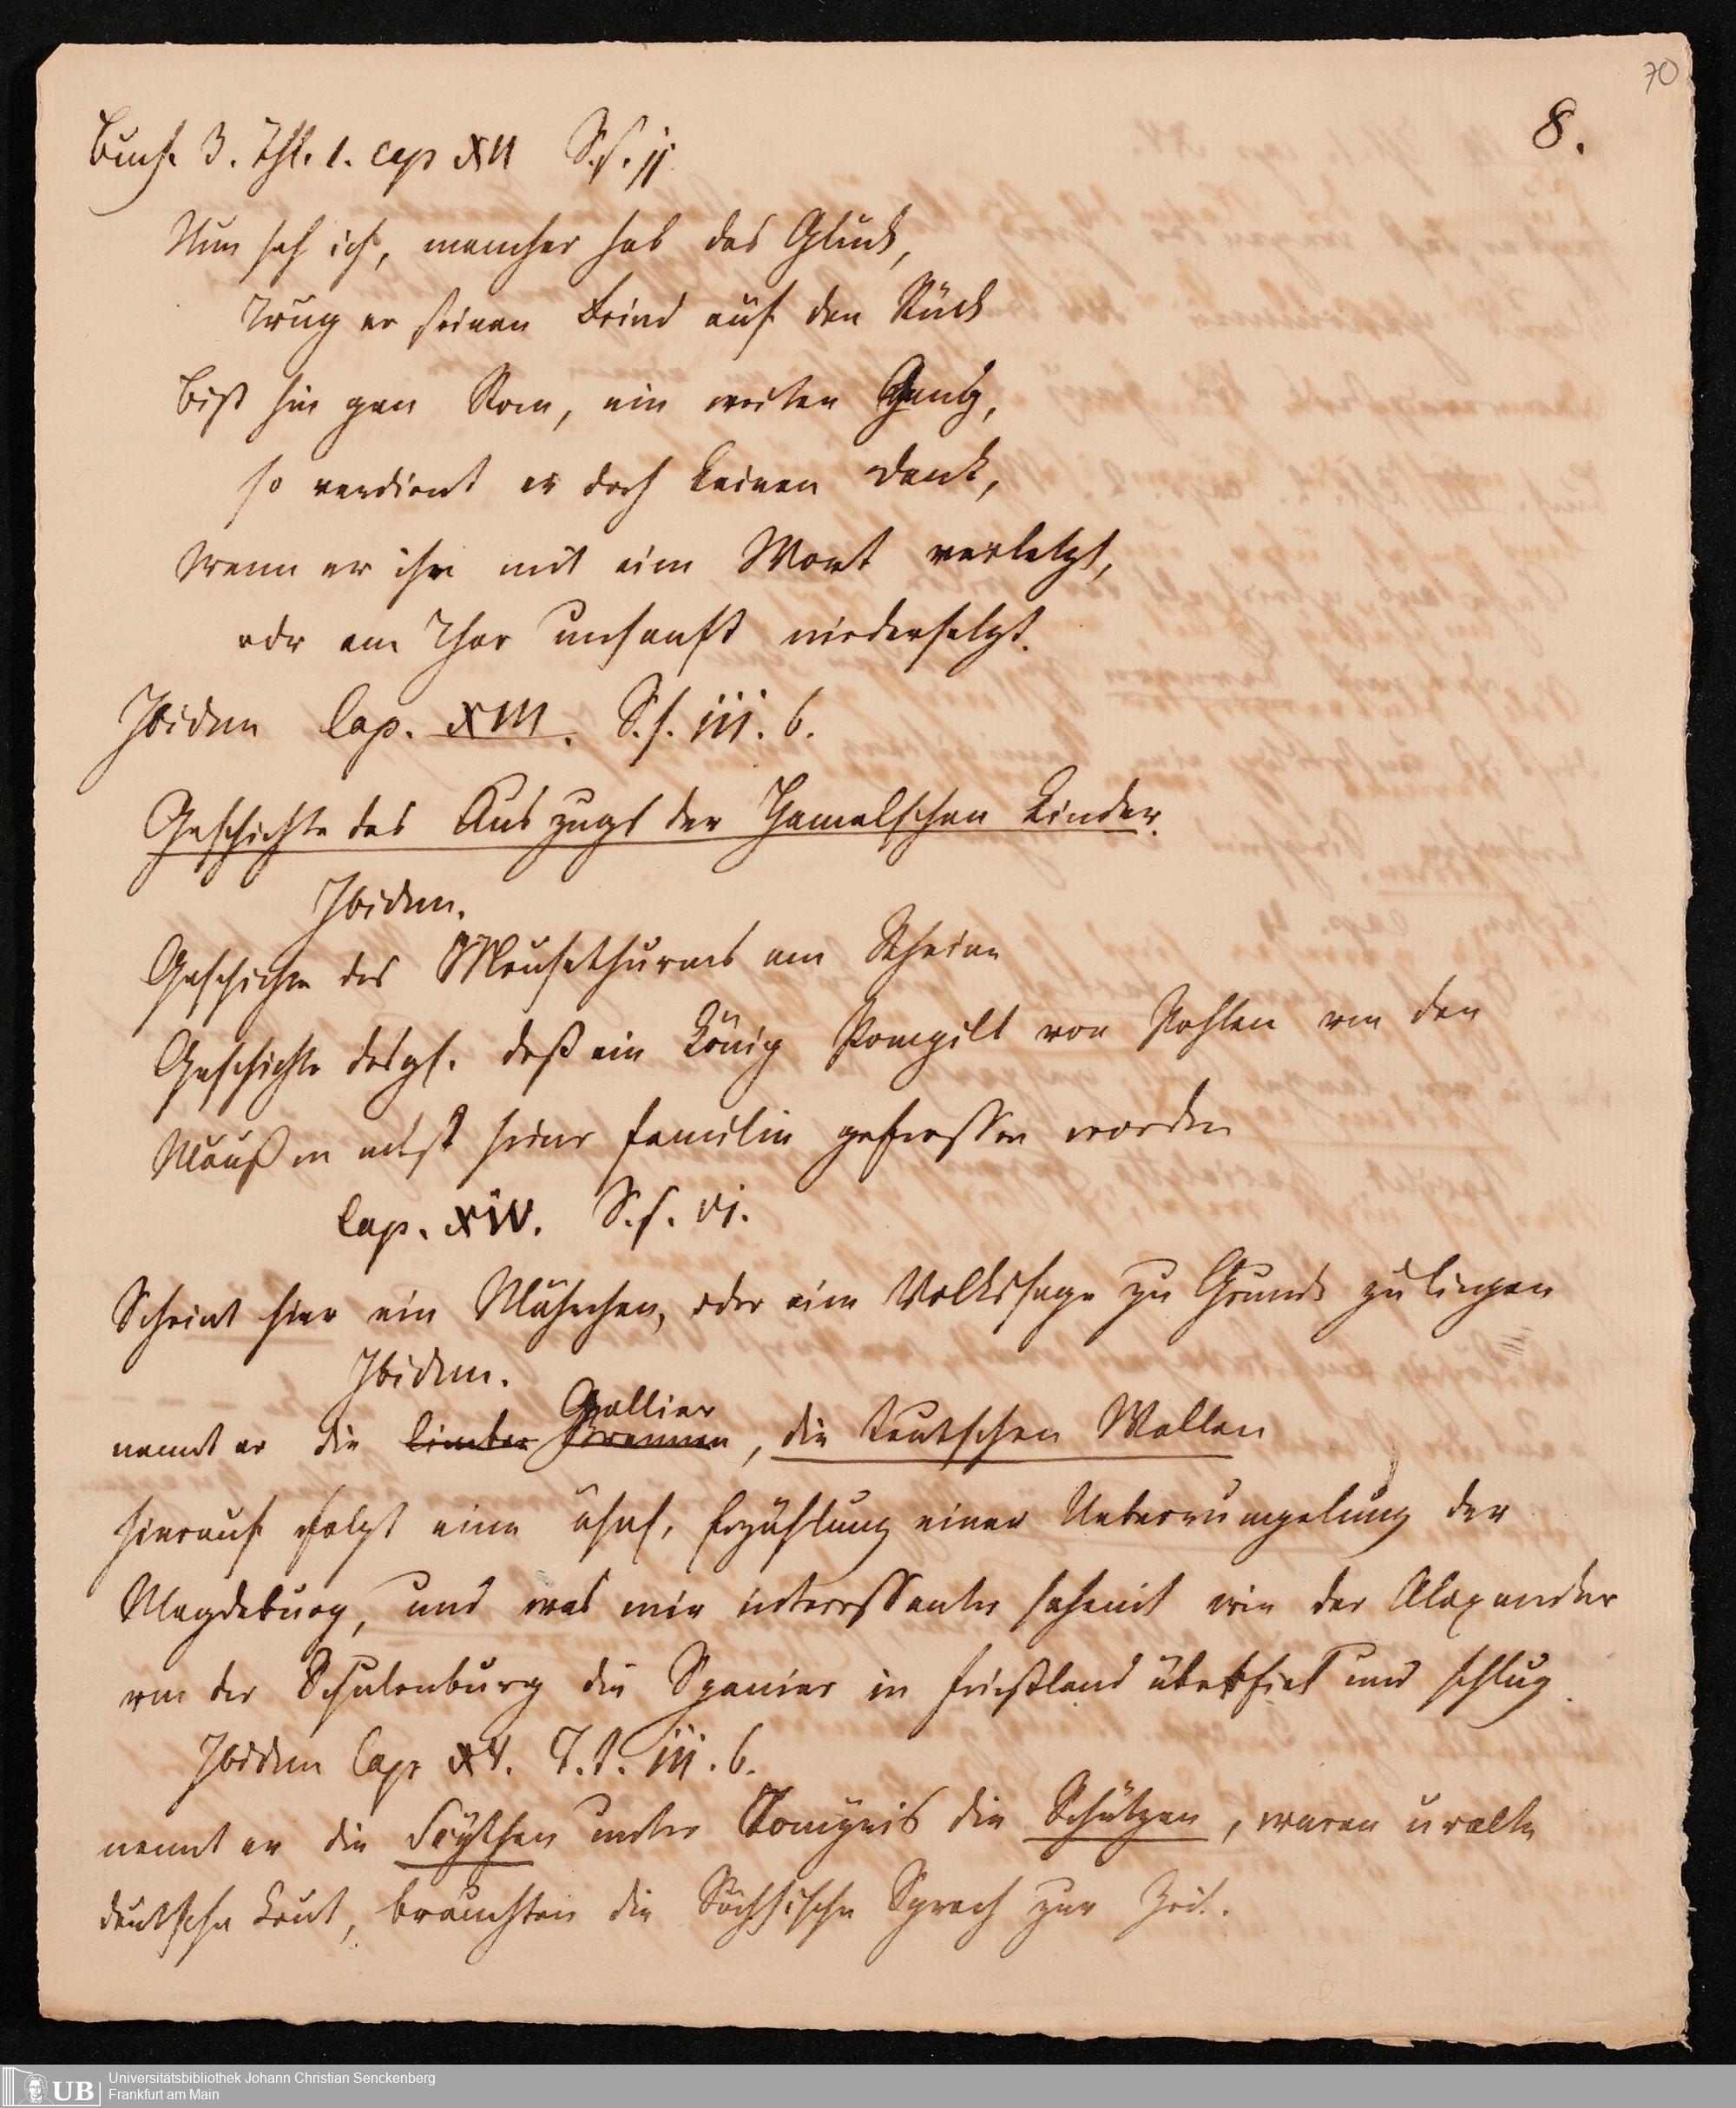 70
8.
Buch. 3. Thl. 1. cap XII S.s.ij.
Nun sah ich, mancher hab das Glück,
Trug er seinen Feind auf den Rück
Bist hin gen Rom, ein weiten Gang,
so verdient er doch keinen Dank,
Wenn er ihn mit eim Wort verletzt,
odr am Thor unsanft niedersetzt.
Ibidem Cap. XIII. S.s. iij. b.
Geschichte des Auszugs der Hamelschen Kinder.
Ibidem.
Geschichte des Mäusethurms am Rheine
Geschichte desgl. daß ein König Pompilt von Pohlen von den
Mäußen nebst seiner Familie gefressen worden
Cap. XIV. S.s. vi.
Scheint hier ein Mährchen, oder eine Volkssage zu Grunde zu liegen
Ibidem.
Gallier
nennt er die Cimber Brennen, die teutschen Wallen
hierauf folgt eine ähnl. Erzählung einer Ueberrumpelung der
Magdeburg, und was mir interessanter scheint wie der Alexander
von der Schulenburg die Spanier in Frießland überfiel und schlug.
Ibidem Cap XV. T.t. iij. b.
nennt er die Scythen unter Tomyris die Schützen, waren uralte
deutsche Leut, brauchten die Sächsische Sprach zur Zeit.
UB
Universitätsbibliothek Johann Christian Senckenberg
Frankfurt am Main